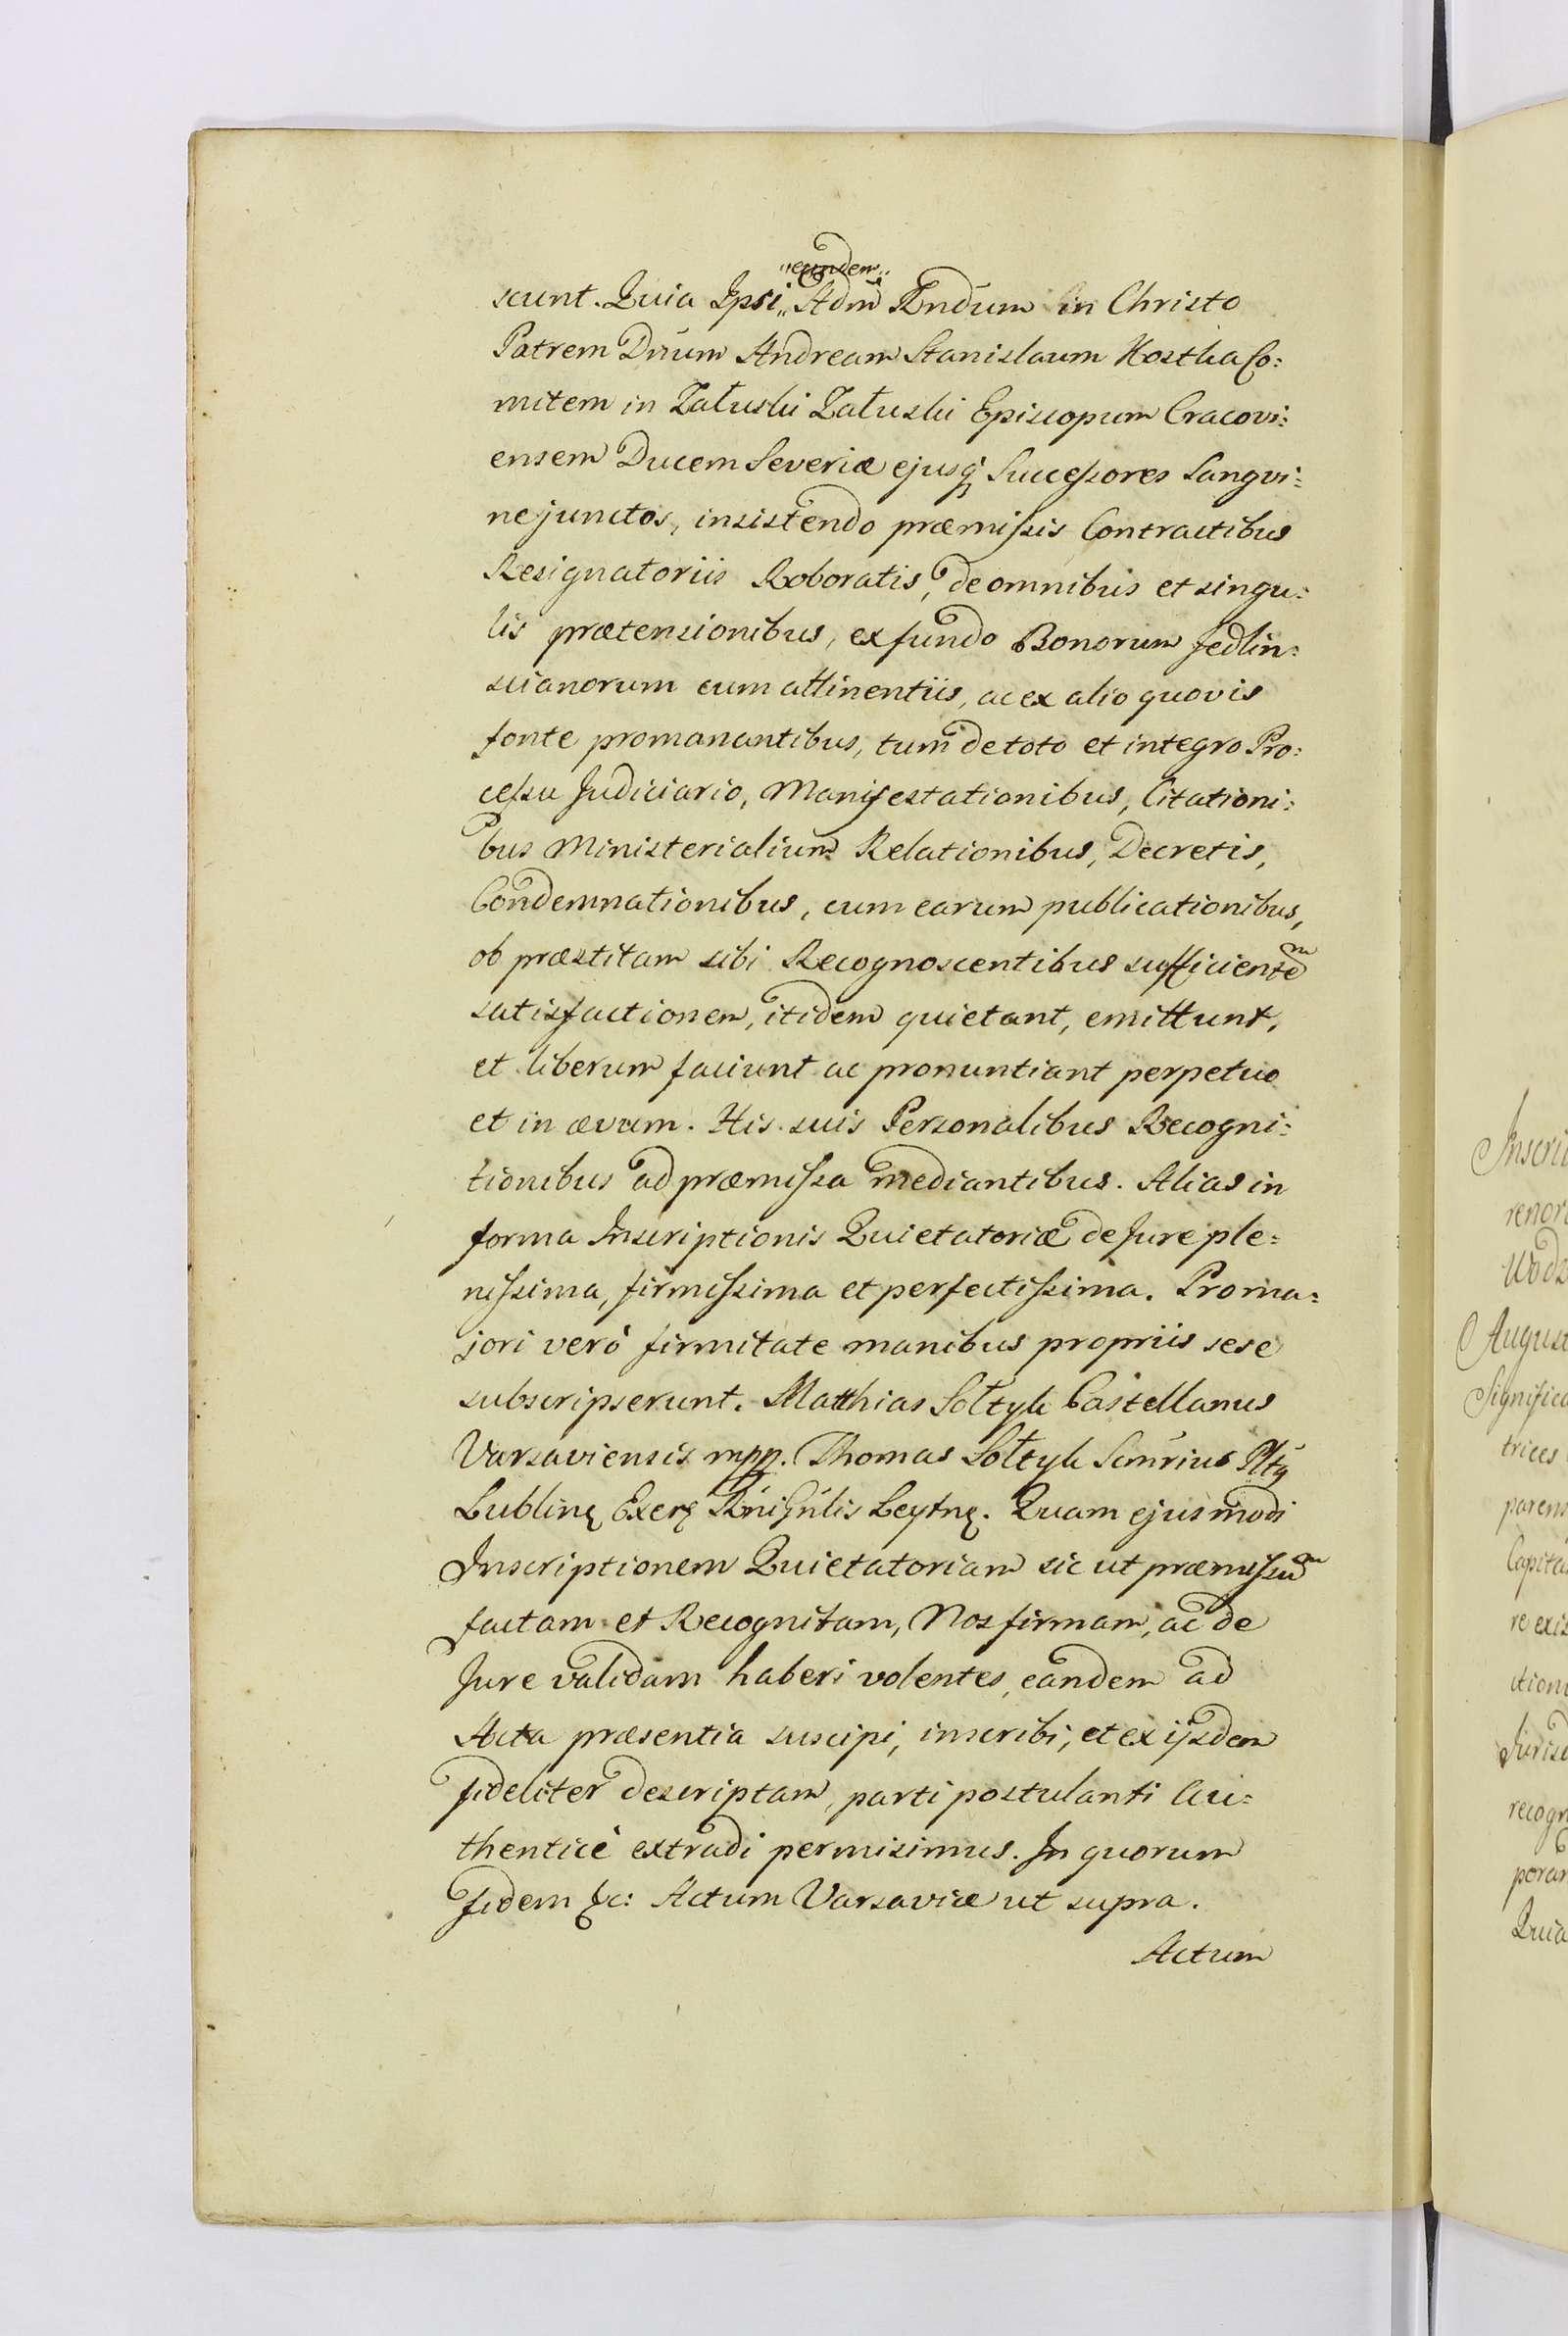 „eundem„
scunt. Quia Ipsi„ Adm Rndum in Christo
Patrem Dnum Andream Stanislaum Kostka Co:
mitem in Załuski Załuski Episcopum Cracovi:
ensem Ducem Severiæ ejusq Successores Sangvi:
ne junctos, insistendo præmissis Contractibus
Resignatoriis Roboratis, de omnibus et singu:
lis prætensionibus, ex fundo Bonorum Jedlin:
scianorum cum attinentiis, ac ex alio quovis
fonte promanantibus, tum de toto et integro Pro:
cessu Judiciario, Manifestationibus, Citationi:
bus Ministerialium Relationibus, Decretis,
Condemnationibus, cum earum publicationibus,
ob præstitam sibi Recognoscentibus sufficientem
satisfactionem, itidem quietant, emittunt,
et liberum faciunt ac pronuntiant perpetuo
et in ævum. His suis Personalibus Recogni:
tionibus ad præmissa mediantibus. Alias in
forma Inscriptionis Quietatoriæ de Jure ple:
nissima, firmissima et perfectissima. Pro ma:
jori verò firmitate manibus propriis sese
subscripserunt. Matthias Sołtyk Castellanus
Varsaviensis mpp. Thomas Sołtyk
Quam ejusmodi
Inscriptionem Quietatoriam sic ut præmissum
factam et Recognitam, Nos firmam, ac de
Jure validam haberi volentes, eandem ad
Acta præsentia suscipi, inscribi, et ex ijsdem
fideliter descriptam, parti postulanti Au:
thenticè extradi permisimus. In quorum
Fidem &c: Actum Varsaviæ ut supra.
Actum
Wodz
August
trices
parens
re exis
recogn
porar
Quia